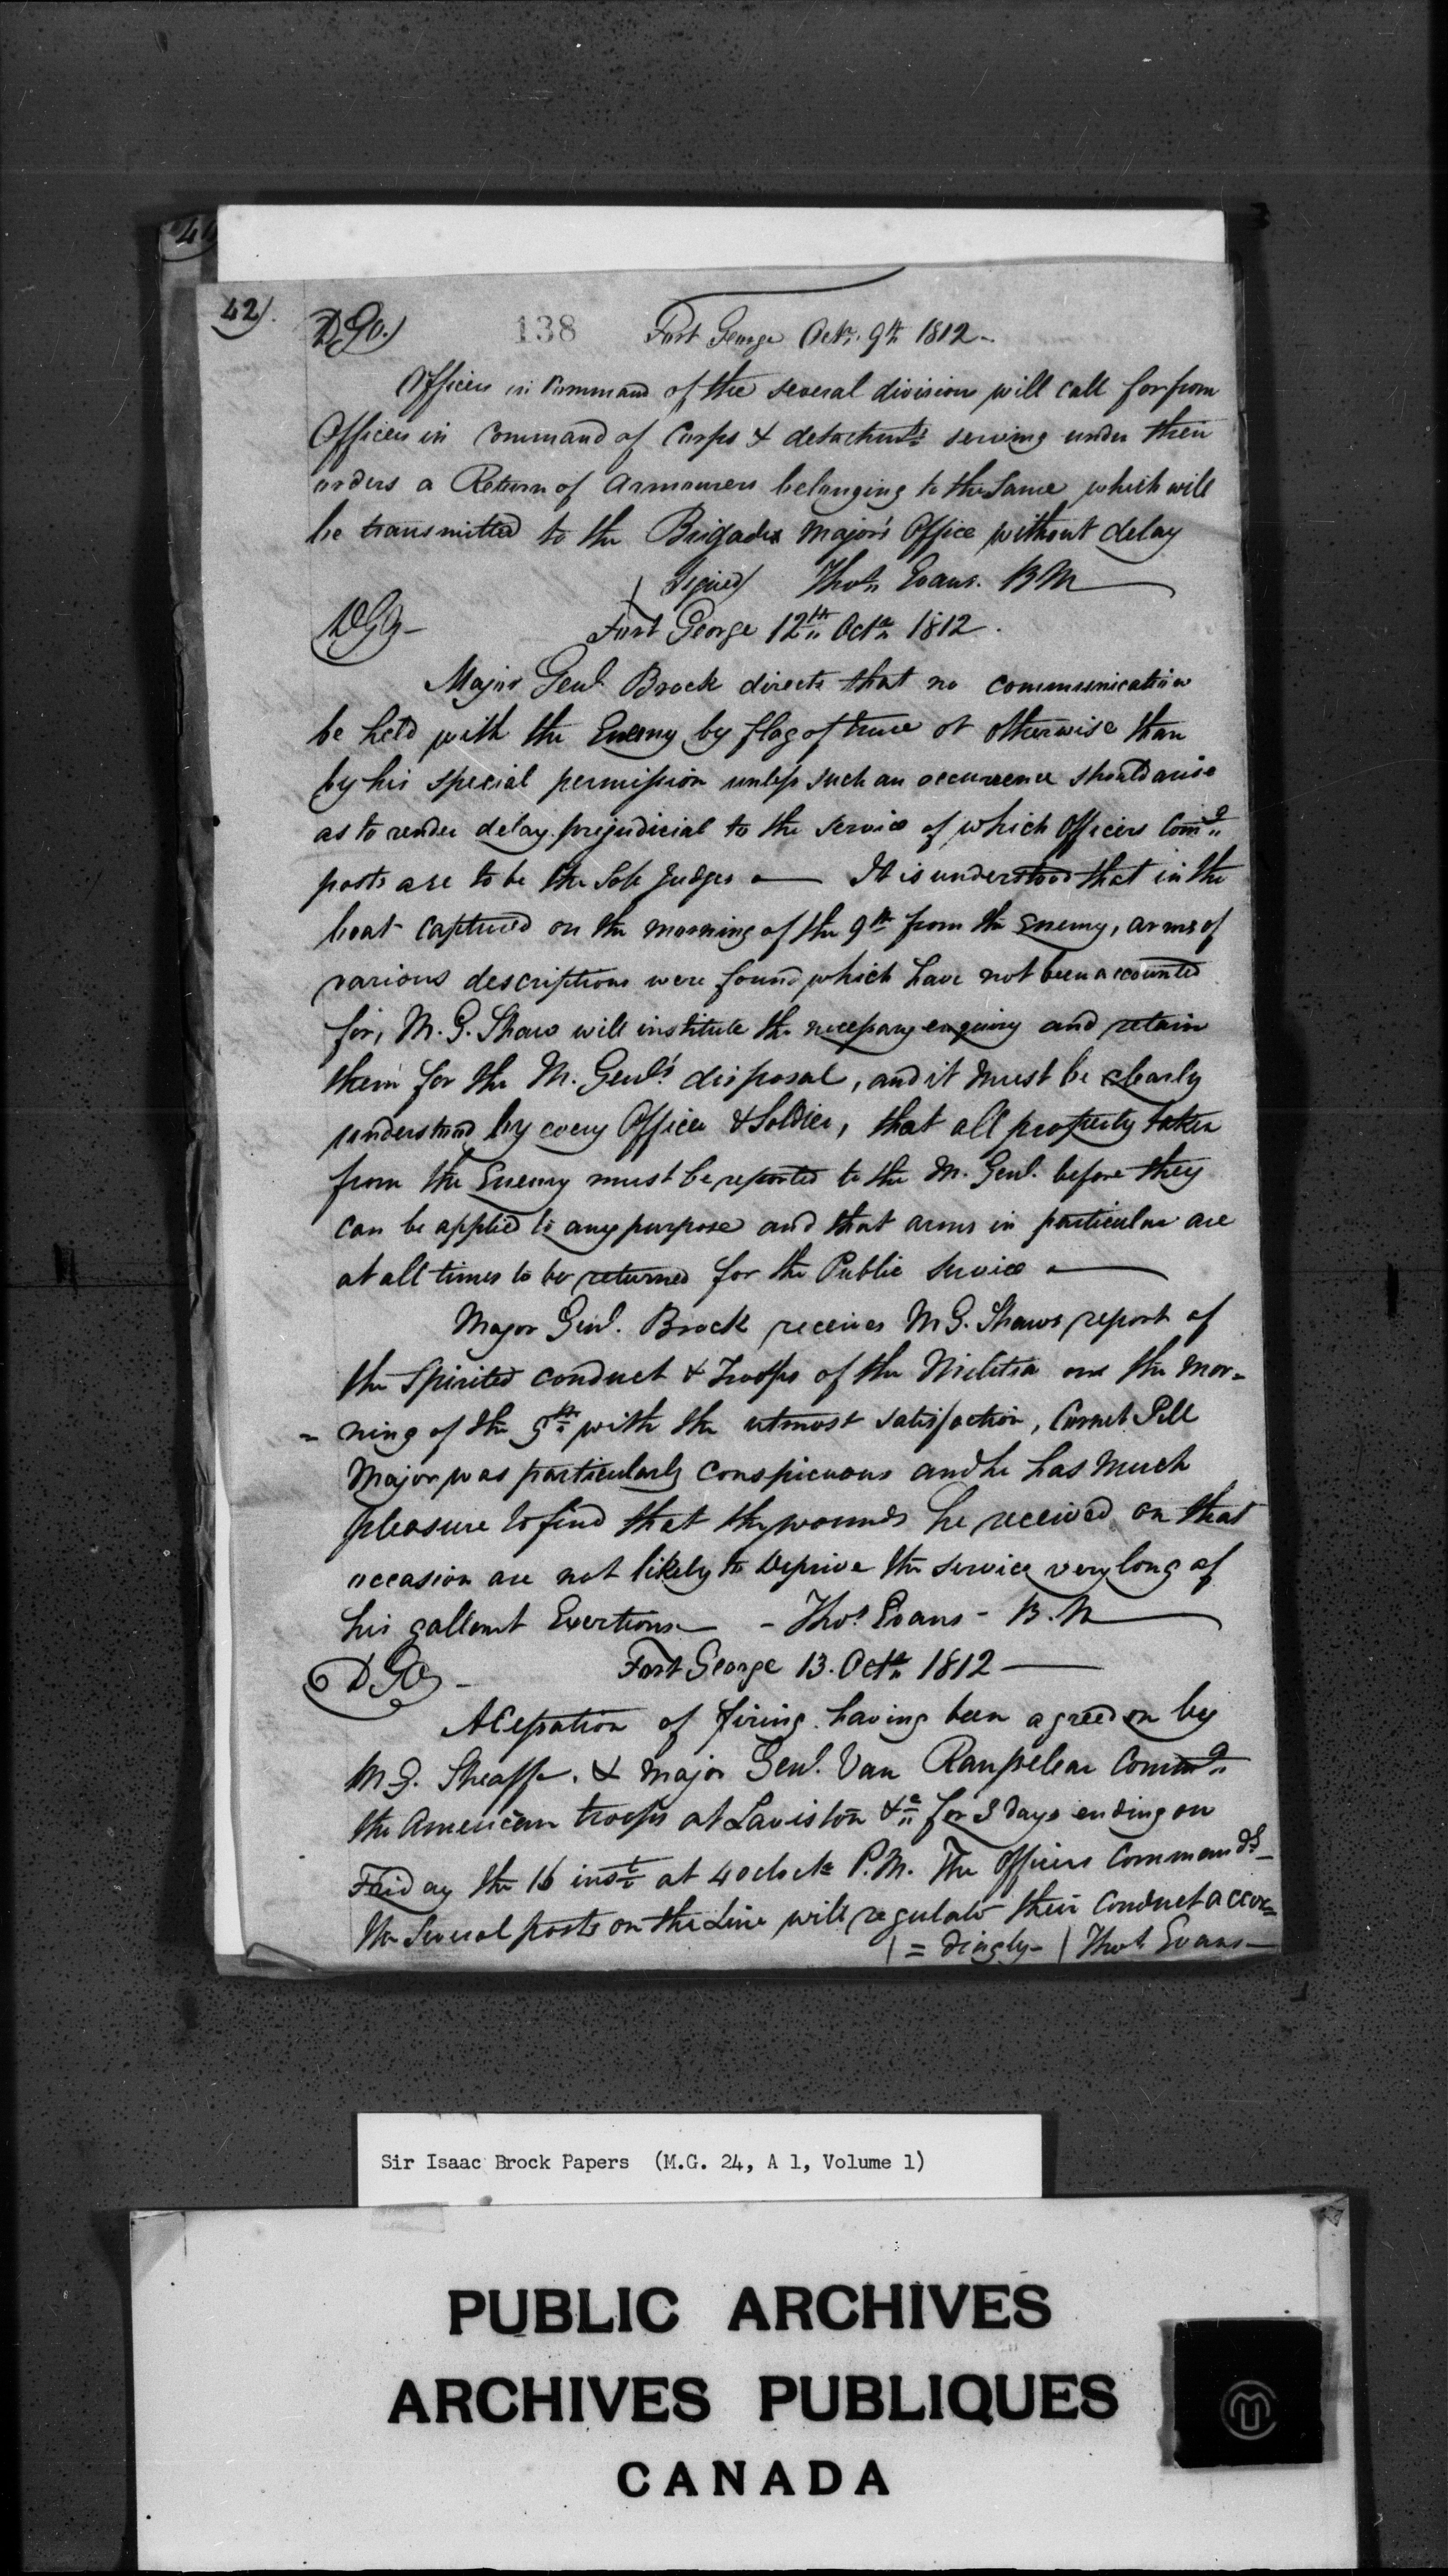 42).
DGO.) 138 Fort George Octr. 9th 1812 -
Officers in Command of the several divisions will call for from
Officers in Command of Corps & detachmts serving under their
orders a Return of Armourers belonging to the Same which will
be transmitted to the Brigade Major's Office without delay
(Signed) Thos Evans. B M
DGO - Fort George 12th Octr 1812.
Major Genl Brock directs that no communication
be held with the Enemy by flag of truce or otherwise than
by his special permission unless such an occurrence should arise
as to render delay prejudicial to the service of which Officers Comdg
posts are to be the Sole Judges - It is understood that in the
boat captured on the morning of the 9th from the Enemy, arms of
various descriptions were found which have not been accounted
for, M. G. Shaw will institute the necessary enquiry and retain
them for the M. Genl's disposal, and it must be clearly
understood by every Officer & Soldier, that all property taken
from the Enemy must be reported to the M. Genl. before they
can be applied to any purpose and that arms in particular are
at all times to be returned for the Public Service -
Major Genl. Brock receives M G. Shaws report of
the Spirited conduct & Troops of the Militia on the mor=
= ning of the 9th with the utmost satisfaction, Cornet Pell
Major was particularly conspicuous and he has much
pleasure to find that the wounds he received on that
occasion are not likely to deprive the service very long of
his gallant Exertions - - Thos Evans - B. M
DGO - Fort George 13. Octr 1812 -
A Cessation of firing having been agreed on by
M G. Sheaffe. & Major Genl. Van Ranselear Commdg
the American troops at Lewiston &c for 3 days ending on
Friday the 16 inst at 4 oClock P.M. The Officers Commandg
the Several posts on the Line will regulate their Conduct accor=
(= dingly - ( Thos Evans -
Sir Isaac Brock Papers (M.G. 24, A 1, Volume 1)
PUBLIC ARCHIVES
ARCHIVES PUBLIQUES
CANADA